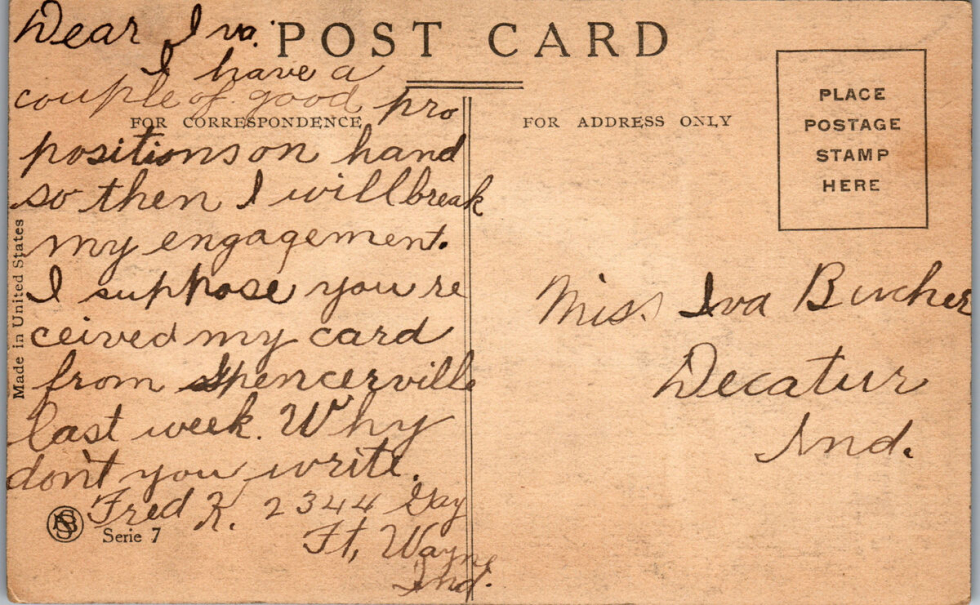 Dear Iva.
POST CARD
I have a
couple of good pro
FOR CORRESPONDENCE
positions on hand
so then I will break
my engagement.
I suppose you re
ceived my card
from Spencerville
last week. Why
don't you write.
Fred K. 2344 Gay
Ft, Wayne
Ind.
Serie 7
Made in United States
FOR ADDRESS ONLY
PLACE
POSTAGE
STAMP
HERE
Miss Iva Bucher
Decatur
Ind.